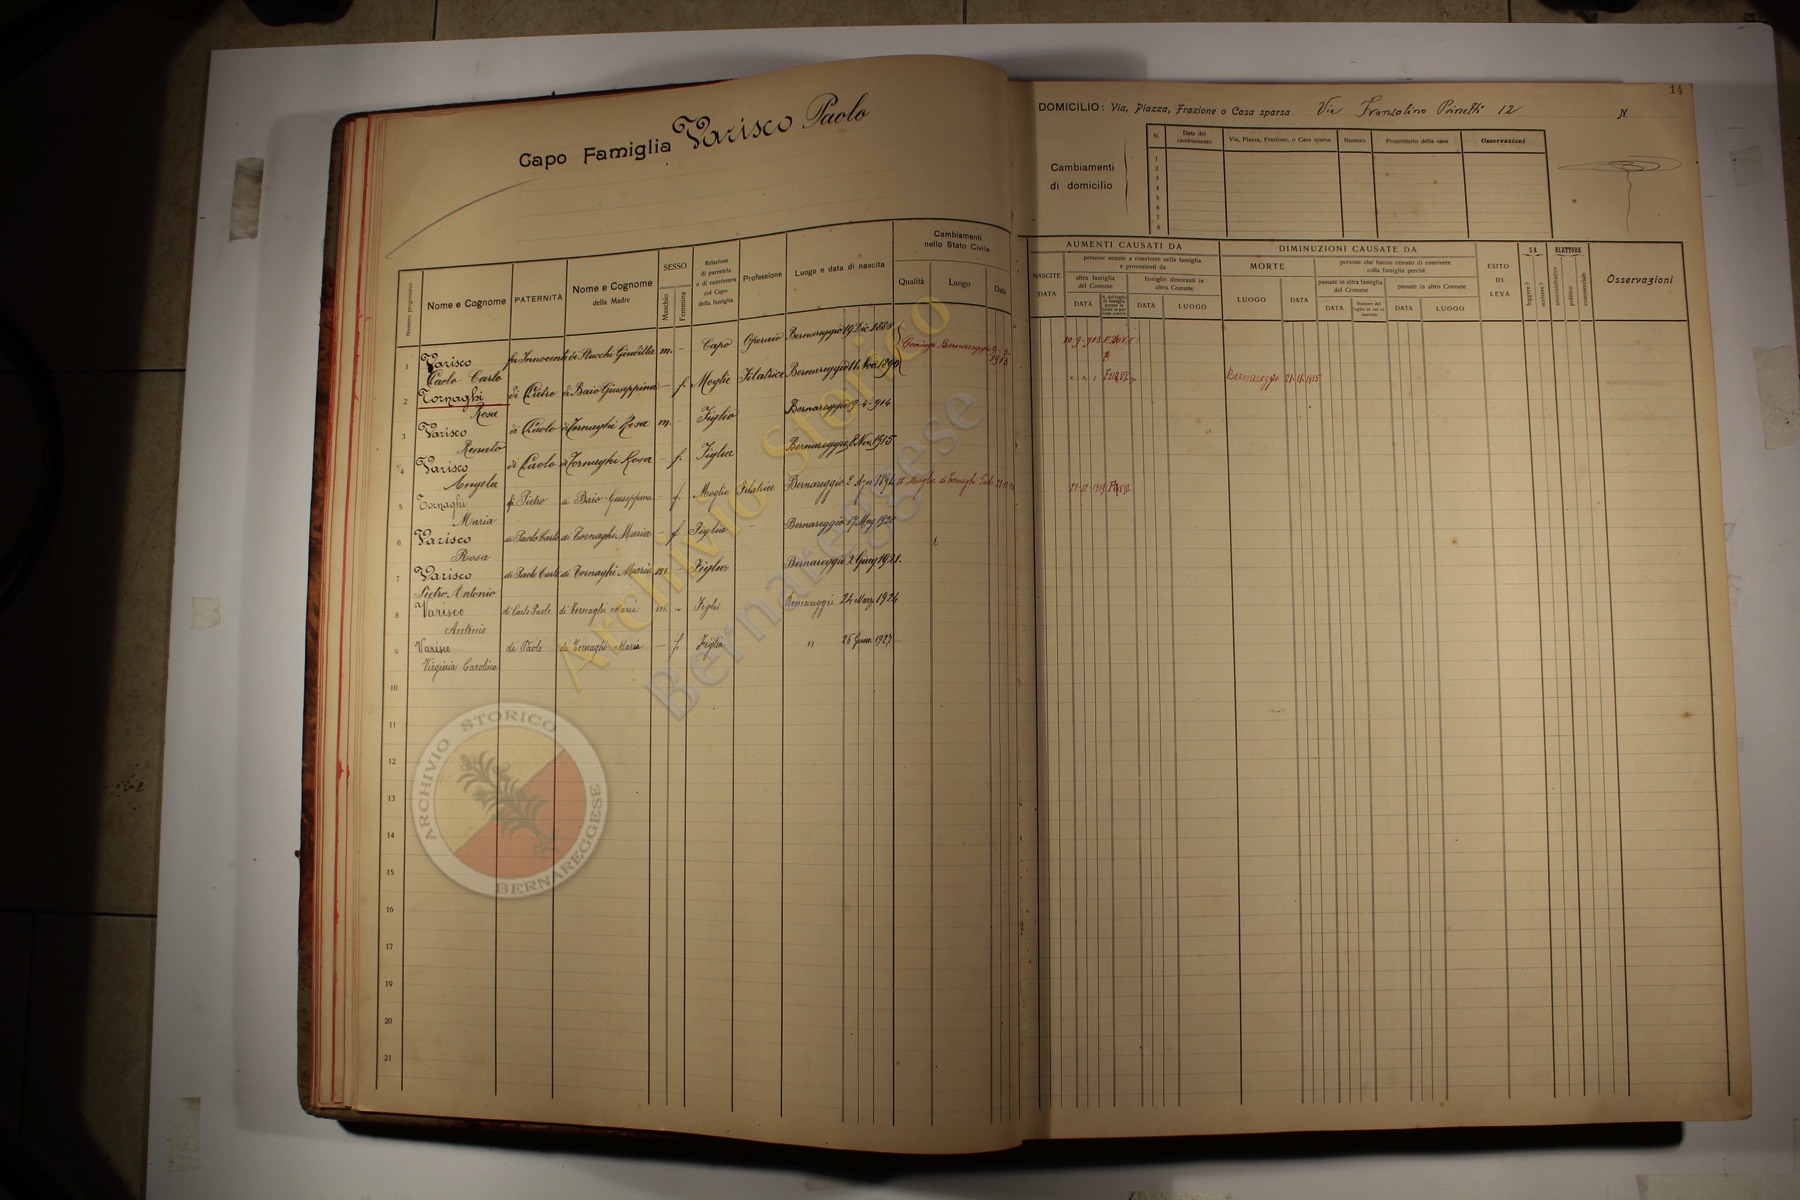 Capo Famiglia Varisco Paolo
14
DOMICILIO: Via, Piazza, Frazione o Casa sparsa Via Franzolino Prinetti 12 N.
Cambiamenti
di domicilio
N. Data del cambiamento Via, Piazza, Frazione, o Casa sparsa Numero Proprietario della casa Osservazioni
1
2
3
4
5
6
7
8
Numero progressivo
Nome e Cognome
PATERNITÀ
Nome e Cognome
della Madre
SESSO
Maschio
Femmina
Relazione
di parentela
o di convivenza
col Capo
della famiglia
Professione
Luogo e data di nascita
Cambiamenti
nello Stato Civile
Qualità Luogo Data
NASCITE
DATA
AUMENTI CAUSATI DA
persone venute a convivere nella famiglia
e provenienti da
altra famiglia
del Comune
famiglie dimoranti in
altro Comune
DATA
DATA LUOGO
DIMINUZIONI CAUSATE DA
MORTE
LUOGO DATA
persone che hanno cessato di convivere
colla famiglia perchè
passate in altra famiglia
del Comune
passate in altro Comune
DATA
DATA LUOGO
ESITO
DI
LEVA
SA
leggere?
scrivere?
ELETTORE
amministrativo
politico
commerciale
Osservazioni
1 Varisco fu Innocente di Stucchi Giuditta m. - Capo Operaio Bernareggio 19 Dic. 1888 Coniugi Bernareggio 9-9-1913 10-9-913
Paolo-Carlo
2 Tornaghi di Pietro di Baio Giuseppina - f. Moglie Filatrice Bernareggio 11 Nov. 1890 Bernareggio 21-11-1915
Rosa
3 Varisco di Paolo di Tornaghi Rosa m. - Figlio Bernareggio 19-4-914
Renato
4 Varisco di Paolo di Tornaghi Rosa - f. Figlia Bernareggio 8 Nov. 1915
Angela
5 Tornaghi di Pietro di Baio Giuseppina - f Moglie Filatrice Bernareggio 2 1894 Moglie di Tornaghi 21-12-1919
Maria
6 Varisco di Paolo Carlo di Tornaghi Maria - f Figlia - Bernareggio 17 Mag 1920
Rosa
7 Varisco di Paolo Carlo di Tornaghi Maria m. - Figlio Bernareggio 2 Giug 1921.
Pietro Antonio
8 Varisco di Carlo Paolo di Tornaghi Maria m. - Figlio Bernareggio 24 Marz. 1924
Antonio
9 Varisco di Paolo di Tornaghi Maria - f. Figlia " 26 Genn. 1927
Virginia Carolina
10
11
12
13
14
15
16
17
18
19
20
21
Archivio Storico
Bernareggese
ARCHIVIO STORICO
BERNAREGGESE